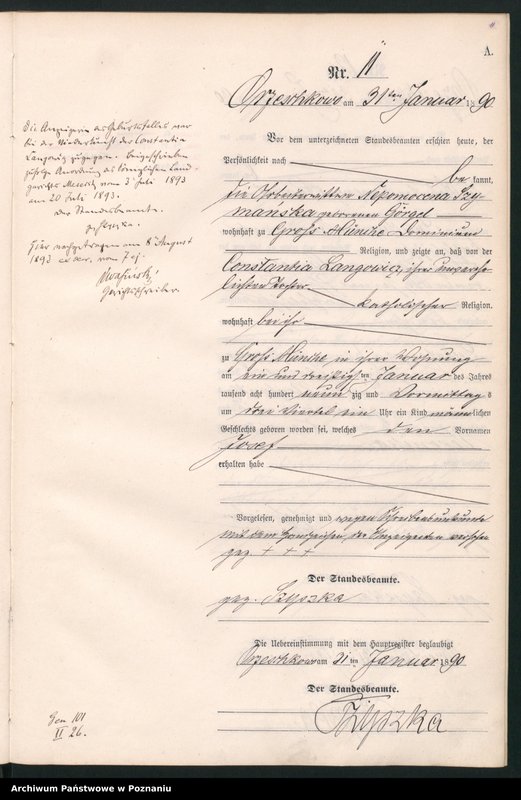 A.
Nr. 11
Orzeschkowo am 31ten Januar 1890
Vor dem unterzeichneten Standesbeamten erschien heute, der
Persönlichkeit nach be kannt,
die Nepomocena Szy-
manska geborenen Görgel
wohnhaft zu Groß Münche Dominium
Religion, und zeigte an, daß von der
Constantia Langowicz, ihrer unverehe-
lichten Tochter
katholischer Religion,
wohnhaft bei ihr
zu Groß Münche in ihrer Wohnung
am ein und dreißigsten Januar des Jahres
tausend acht hundert neun zig und Vormittag s
um drei Viertel ein Uhr ein Kind männlichen
Geschlechts geboren worden sei, welches den Vornamen
Josef
erhalten habe
Vorgelesen, genehmigt und wegen Schreibensunkunde
mit dem Handzeichen der Anzeigenden versehen
gez. + + +
Der Standesbeamte.
gez. Szyszka
Die Uebereinstimmung mit dem Hauptregister beglaubigt
Orzeschkowo am 31ten Januar 1890
Der Standesbeamte.
Szyszka
Die Anzeigerin des Geburtsfalles war
bei der Niederkunft der Constantia
Langowicz zugegen. Beigeschrieben
zufolge Anordnung des Königlichen Land-
gerichts Meseritz vom 3 Juli 1893
am 20 Juli 1893.
Der Standesbeamte.
gez. Szyszka.
Hier nachgetragen am 8 August
1893
Gerichtsschreiber
Gen 101
II 26.
Archiwum Państwowe w Poznaniu